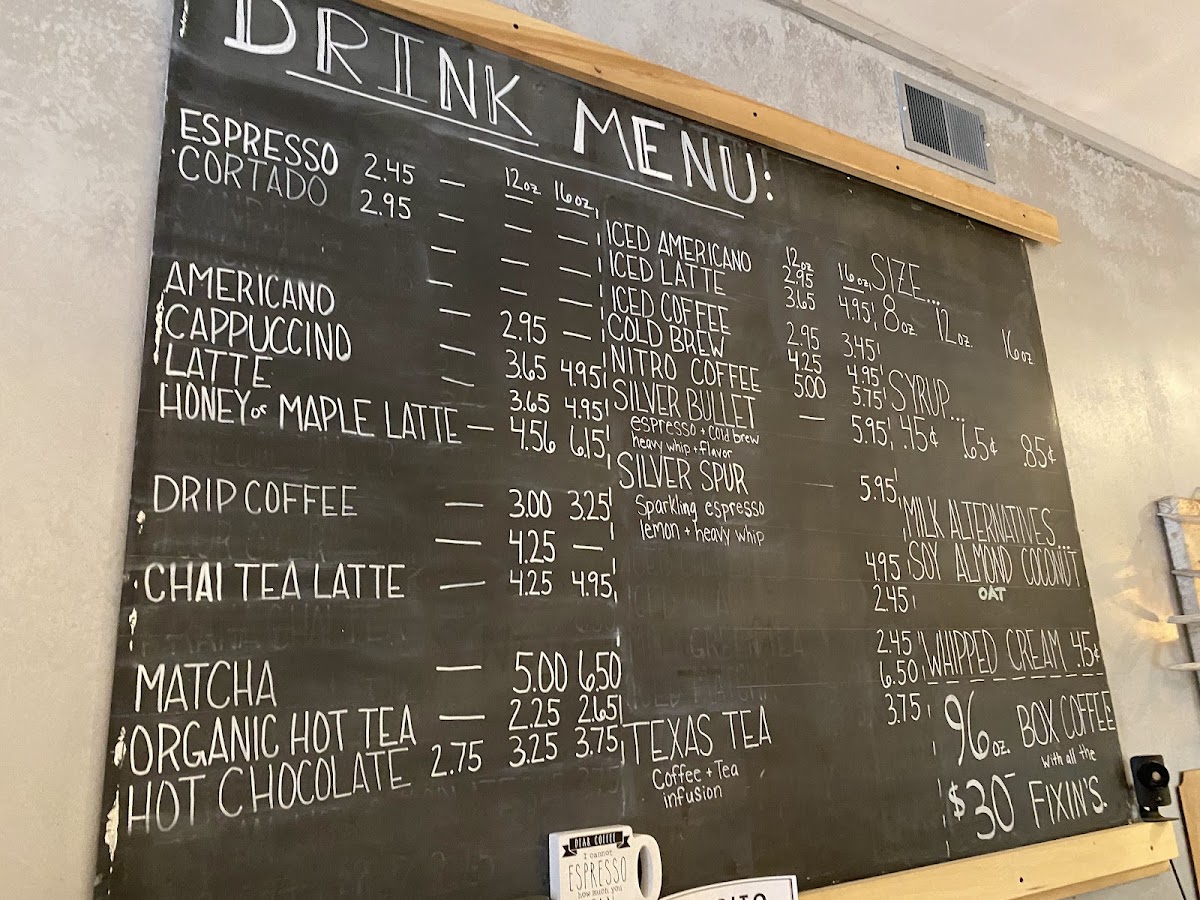 DRINK MENU:
12oz 16oz
ESPRESSO 2.45 — — —
CORTADO 2.95 — — —
— — —
— — —
AMERICANO — 2.95 —
CAPPUCCINO — 3.65 4.95
LATTE — 3.65 4.95
HONEY or MAPLE LATTE — 4.56 6.15
DRIP COFFEE — 3.00 3.25
— 4.25 —
CHAI TEA LATTE — 4.25 4.95
MATCHA — 5.00 6.50
ORGANIC HOT TEA — 2.25 2.65
HOT CHOCOLATE 2.75 3.25 3.75
12oz 16oz
ICED AMERICANO 2.95 4.95
ICED LATTE 3.65
ICED COFFEE 2.95 3.45
COLD BREW 4.25 4.95
NITRO COFFEE 5.00 5.75
SILVER BULLET — 5.95
espresso + cold brew
heavy whip + flavor
SILVER SPUR — 5.95
Sparkling espresso
lemon + heavy whip
4.95
2.45
2.45
6.50
TEXAS TEA 3.75
Coffee + Tea
infusion
SIZE...
8oz 12oz 16oz
SYRUP...
.45¢ .65¢ .85¢
MILK ALTERNATIVES...
SOY ALMOND COCONUT
OAT
WHIPPED CREAM .45¢
96oz. BOX COFFEE
with all the
$30 FIXIN'S.
DEAR COFFEE
I cannot
ESPRESSO
how much you